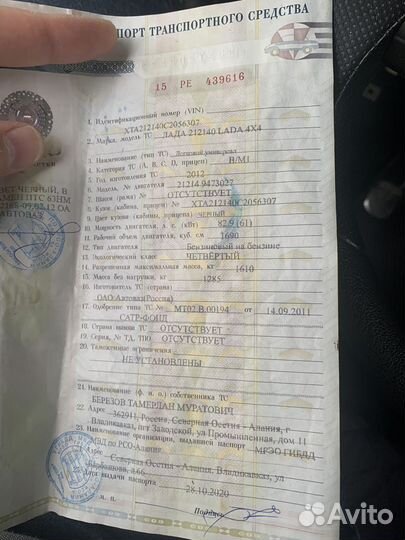 ПОРТ ТРАНСПОРТНОГО СРЕДСТВА
15 РЕ 439616
1. Идентификационный номер (VIN)
XTA212140C2056307
2. Марка, модель ТС ЛАДА 212140 LADA 4X4
3. Наименование (тип ТС) Легковой универсал
4. Категория ТС (A, B, C, D, прицеп) B/M1
5. Год изготовления ТС 2012
6. Модель, № двигателя 21214 9473027
7. Шасси (рама) № ОТСУТСТВУЕТ
8. Кузов (кабина, прицеп) № XTA212140C2056307
9. Цвет кузова (кабины, прицепа) ЧЕРНЫЙ
10. Мощность двигателя, л. с. (кВт) 82.9 (61)
11. Рабочий объем двигателя, куб. см 1690
12. Тип двигателя Бензиновый на бензине
13. Экологический класс ЧЕТВЁРТЫЙ
14. Разрешенная максимальная масса, кг 1610
15. Масса без нагрузки, кг 1285
16. Изготовитель ТС (страна)
ОАО"Автоваз(Россия)
17. Одобрение типа ТС № МТ02.В.00194 от 14.09.2011
САТР-ФОНД
18. Страна вывоза ТС ОТСУТСТВУЕТ
19. Серия, № ТД, ТПО ОТСУТСТВУЕТ
20. Таможенные ограничения
НЕ УСТАНОВЛЕНЫ
21. Наименование (ф. и. о.) собственника ТС
БЕРЕЗОВ ТАМЕРЛАН МУРАТОВИЧ
22. Адрес 362911, Россия, Северная Осетия - Алания, г
Владикавказ, пгт Заводской, ул Промышленная, дом 11
23. Наименование организации, выдавшей паспорт МРЭО ГИБДД
МВД по РСО-Алания
24. Адрес Северная Осетия - Алания, Владикавказ, ул
25. Дата выдачи паспорта
28.10.2020
М. п. Подпись
ЕТ ЧЕРНЫЙ, В
АМЕН ПТС 63НМ
ОА
АВТОВАЗ
Avito